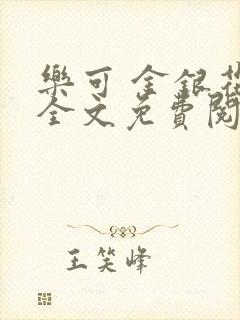 樂可 金銀花
全文免費閱
王笑峰